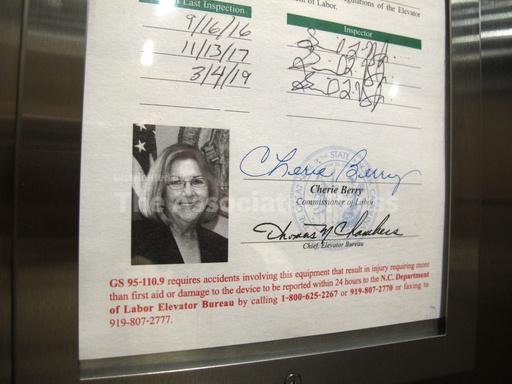 of Last Inspection
9/16/16
11/13/17
3/4/19
of the Elevator
of Labor.
Inspector
Cherie Berry
Cherie Berry
Commissioner of Labor
Thomas N Chambers
Chief, Elevator Bureau
The Associated Press
GS 95-110.9 requires accidents involving this equipment that result in injury requiring more
than first aid or damage to the device to be reported within 24 hours to the N.C. Department
of Labor Elevator Bureau by calling 1-800-625-2267 or 919-807-2770 or faxing to
919-807-2777.